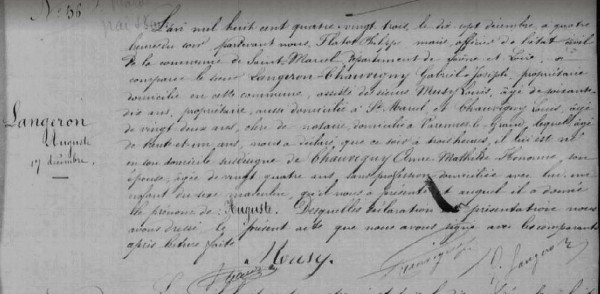 N° 56
L'an mil huit cent quatre vingt trois, le dix sept décembre, à quatre
heures du soir pardevant nous, Philibert maire, officier de l'état civil
de la commune de Saint-Marcel, département de Saône et Loire, a
comparu le sieur Langeron-Chauvigny Gabriel Joseph, propriétaire
domicilié en cette commune, assisté des sieurs Meusy Louis, âgé de soixante
dix ans, propriétaire, aussi domicilié à St Marcel et Chauvigny Louis, âgé
de vingt deux ans, clerc de notaire, domicilié à Varennes-le-Grand, lequel âgé
de trente et un ans, nous a déclaré, que ce soir à trois heures, il lui est né
en son domicile de Chauvigny Anne Mathilde Honorine, son
épouse, âgée de vingt quatre ans, sans profession domiciliée avec lui, un
enfant du sexe masculin, qu'il nous a présenté et auquel il a donné
le prénom de : Auguste. Desquelles déclaration et présentation nous
avons dressé le présent acte que nous avons signé avec les comparants
après lecture faite.
Langeron
Auguste
17 décembre.
Meusy